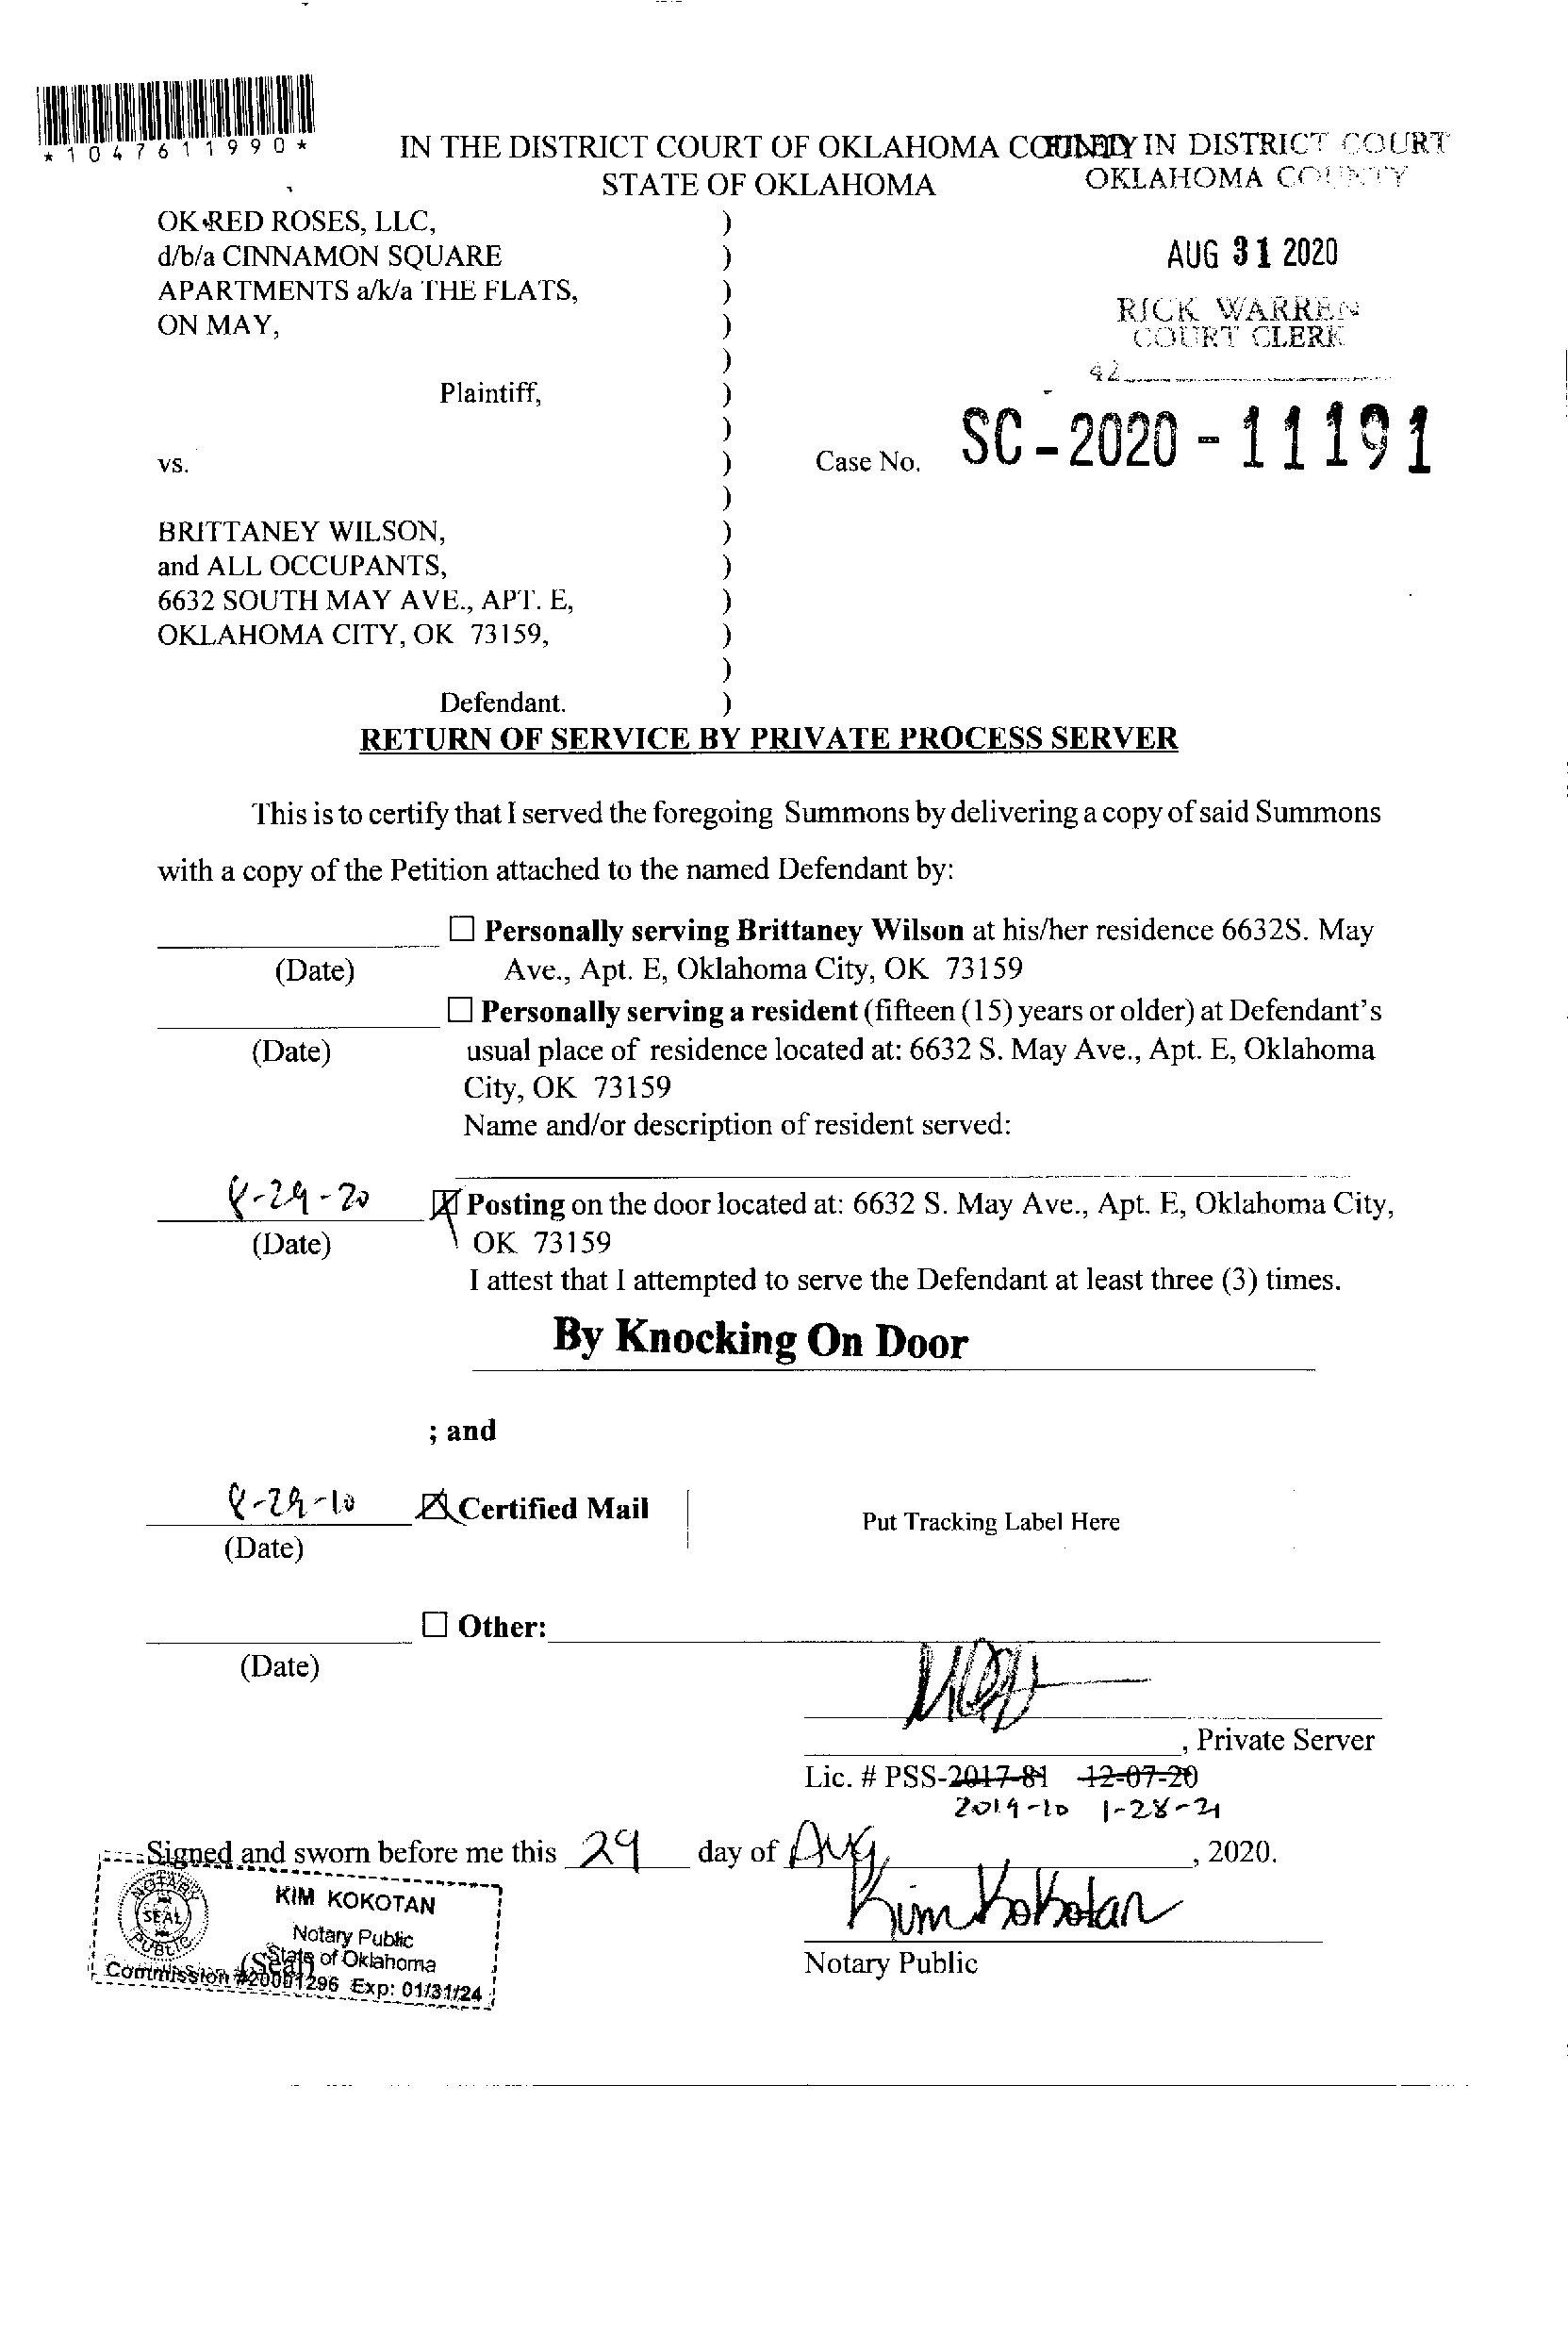 *1047611990*
IN THE DISTRICT COURT OF OKLAHOMA COUNTY
STATE OF OKLAHOMA
FILED IN DISTRICT COURT
OKLAHOMA COUNTY
AUG 31 2020
RICK WARREN
COURT CLERK
42
OK RED ROSES, LLC, )
d/b/a CINNAMON SQUARE )
APARTMENTS a/k/a THE FLATS, )
ON MAY, )
)
Plaintiff, )
)
vs. ) Case No. SC-2020-11191
)
BRITTANEY WILSON, )
and ALL OCCUPANTS, )
6632 SOUTH MAY AVE., APT. E, )
OKLAHOMA CITY, OK 73159, )
)
Defendant. )
RETURN OF SERVICE BY PRIVATE PROCESS SERVER
This is to certify that I served the foregoing Summons by delivering a copy of said Summons
with a copy of the Petition attached to the named Defendant by:
☐ Personally serving Brittaney Wilson at his/her residence 6632S. May
(Date) Ave., Apt. E, Oklahoma City, OK 73159
☐ Personally serving a resident (fifteen (15) years or older) at Defendant's
(Date) usual place of residence located at: 6632 S. May Ave., Apt. E, Oklahoma
City, OK 73159
Name and/or description of resident served:
8-29-20 ☒ Posting on the door located at: 6632 S. May Ave., Apt. E, Oklahoma City,
(Date) OK 73159
I attest that I attempted to serve the Defendant at least three (3) times.
By Knocking On Door
; and
8-29-20 ☒ Certified Mail Put Tracking Label Here
(Date)
☐ Other:
(Date)
, Private Server
Lic. # PSS-2017-81 12-07-20
2019-10 1-28-21
Signed and sworn before me this 29 day of Aug, 2020.
Kim Kokotan
Notary Public
(Seal)
NOTARY
SEAL
PUBLIC
KIM KOKOTAN
Notary Public
State of Oklahoma
Commission #20001296 Exp: 01/31/24